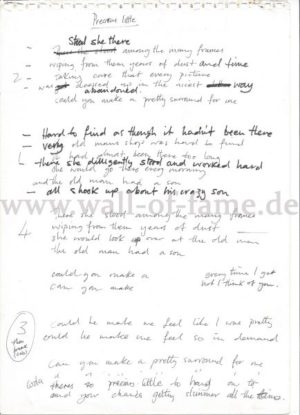 Precious little
Stood she there
among the many frames
- wiping from them years of dust and time
2 - taking care that every picture
- was dressed up in the nicest way
abandoned.
could you make a pretty surround for me
- Hard to find as though it hadn't been there
- very old mans shop was hard to find
hard almost been there too long
there she dilligently stood and worked hard
she would go there every morning
and the old man had a son
- all shook up about his crazy son
www.wall-of-fame.de
there she stood among the many frames
4 wiping from them years of dust
she would look up over at the old man
the old man had a son
could you make a every time I get
can you make but I think of you.
3
then break
could he make me feel like I was pretty
could he make me feel so in demand
can you make a pretty surround for me
theres so precious little to hand on to
and your chances getting slimmer all the time.